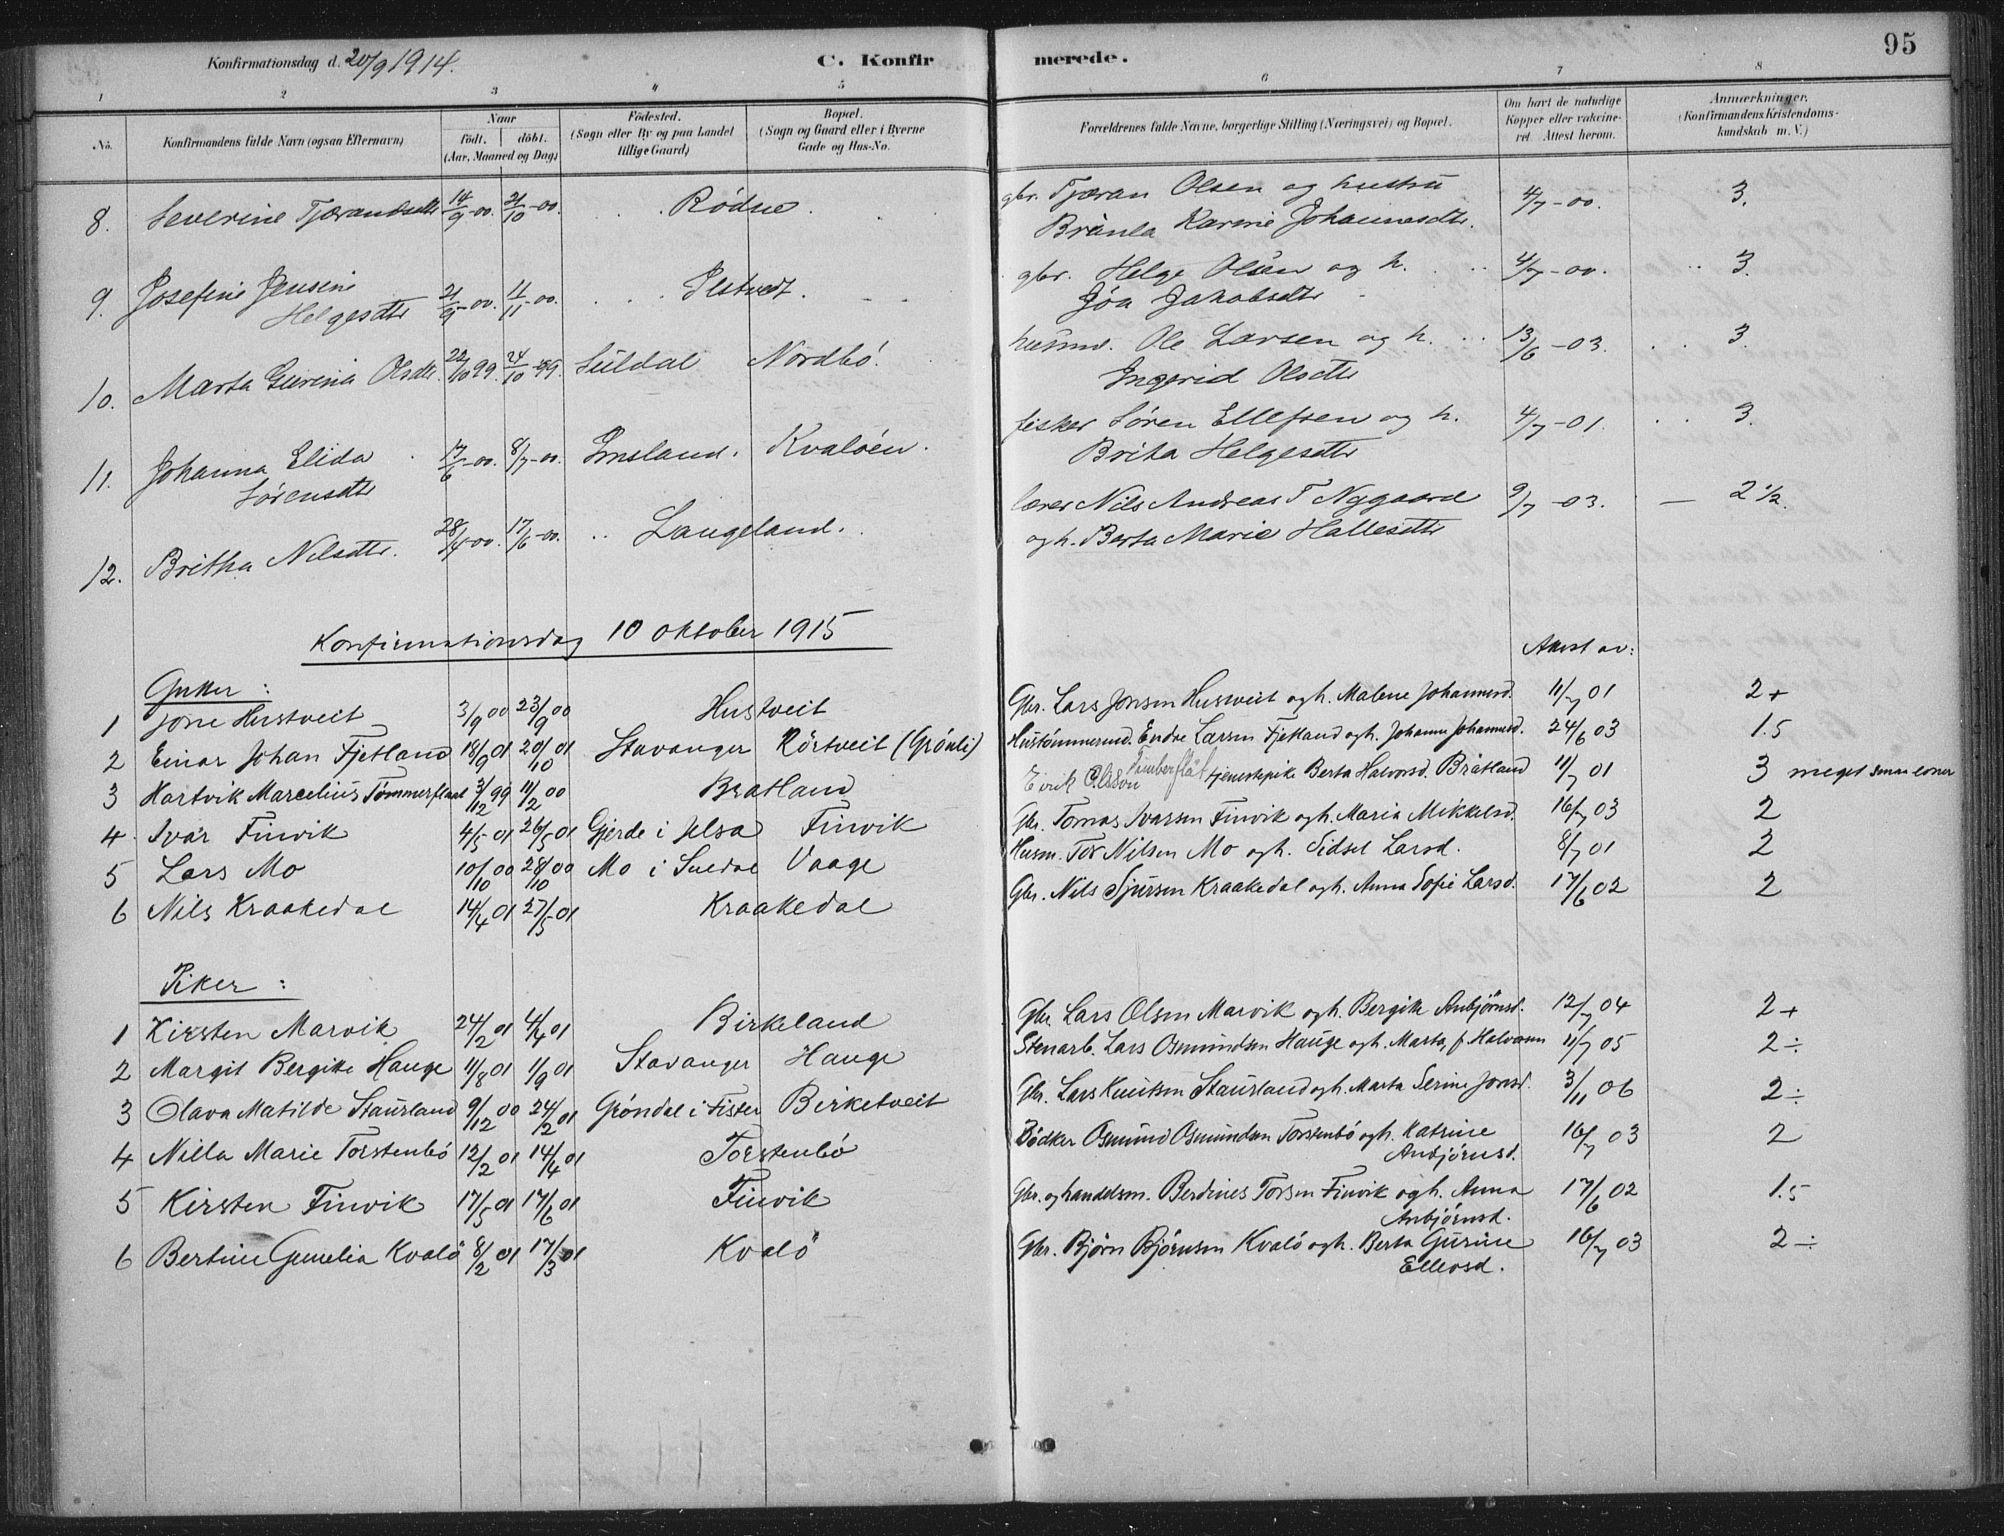 Konfirmationsdag d. 20/9 1914. C. Konfirmerede. 95
1 2 3 4 5 6 7 8
No. Konfirmandens fulde Navn (ogsaa Efternavn) Naar födt. döbt. (Aar, Maaned og Dag) Födested. (Sogn eller By og paa Landet tillige Gaard) Bopæl. (Sogn og Gaard eller i Byerne Gade og Hus-No. Forældrenes fulde Navne, borgerlige Stilling (Næringsvei) og Bopæl. Om havt de naturlige Kopper eller vakcineret. Attest herom. Anmærkninger. (Konfirmandens Kristendomskundskab m. V.)
8. Severine Tjærandsdtr 14/9-00. 21/10-00. Rødne gbr. Tjæran Olsen og hustru 4/7-00. 3.
Brånla Karine Johannesdtr.
9. Josefine Jensine 21/9-00. 11/11-00. Ilstvedt. gbr. Helge Olsen og h. 4/7-00. 3.
Helgesdtr Jøa Jakobsdtr
10. Marta Gurina Olsdtr. 22/10 99. 24/10-99. Suldal Nordbó. husmd. Ole Larsen og h. 13/6-03. 3.
Ingerid Olsdtr
11. Johanna Elida 17/6-00. 8/7-00. Imsland. Kvaløen. fisker Søren Ellefsen og h. 4/7-01. 3.
Sørensdtr Brita Helgesdtr
12. Britha Nilsdtr. 28/4-00. 17/6-00. Langeland. lærer Nils Andreas T Nygaard 9/7-03. — 2 1/2.
og h. Berta Marie Hallesdtr
Konfirmationsdag 10 oktober 1915
Attest av:
Gutter:
1 Jone Hustveit 3/9 00 23/9 00 Hustveit Gbr. Lars Jonsen Husveit og h. Malene Johannesd. 11/7 01 2+
2 Einar Johan Fjetland 18/9 01 20/10 01 Stavanger Rörtveit (Grönli) Hustömmermd. Endre Larsen Fjetland og h. Johanne Johannesd. 24/6 03 1.5
3 Hartvik Marcelius Tømmerflaat 3/12 99 11/2 00 Bratland Eirik Olsson Timberflåt tjenestepike Berta Halvorsd. Bråtland 11/7 01 3 meget smaa evner
4 Ivar Finvik 4/5 01 26/5 01 Gjerde i Jelsa Finvik Gbr. Tomas Ivarsen Finvik og h. Maria Mikkelsd. 16/7 03 2
5 Lars Mo 10/10 00 28/10 00 Mo i Suldal Vaage Husm. Tor Nilsen Mo og h. Sidsel Larsd. 8/7 01 2
6 Nils Kraakedal 14/4 01 27/5 01 Kraakedal Gbr. Nils Sjursen Kraakedal og h. Anna Sofie Larsd. 17/6 02 2
Piker:
1 Kirsten Marvik 24/2 01 4/4 01 Birkeland Gbr. Lars Olsen Marvik og h. Bergite Anbjörnsd. 12/7 04 2+
2 Margit Bergitte Hauge 11/8 01 1/9 01 Stavanger Hauge Stenarb. Lars Osmundsen Hauge og h. Marta, f. Halvorsen 11/7 05 2÷
3 Olava Matilde Staurland 9/12 00 24/2 01 Gröndal i Fister Birketveit Gbr. Lars Knutsen Staurland og h. Marta Serine Jonsd. 3/11 06 2÷
4 Nilla Marie Torstenbö 12/2 01 14/4 01 Torstenbö Bödker Osmund Osmundsen Torstenbö og h. Katrine 16/7 03 2
Anbjörnsd.
5 Kirsten Finvik 17/5 01 17/6 01 Finvik Gbr. og handelsm. Berdines Torsen Finvik og h. Anna 17/6 02 1.5
Anbjörnsd.
6 Bertine Gunelia Kvalö 8/2 01 17/3 01 Kvalö Gbr. Björn Björnsen Kvalö og h. Berta Gurine 16/7 03 2÷
Ellevsd.